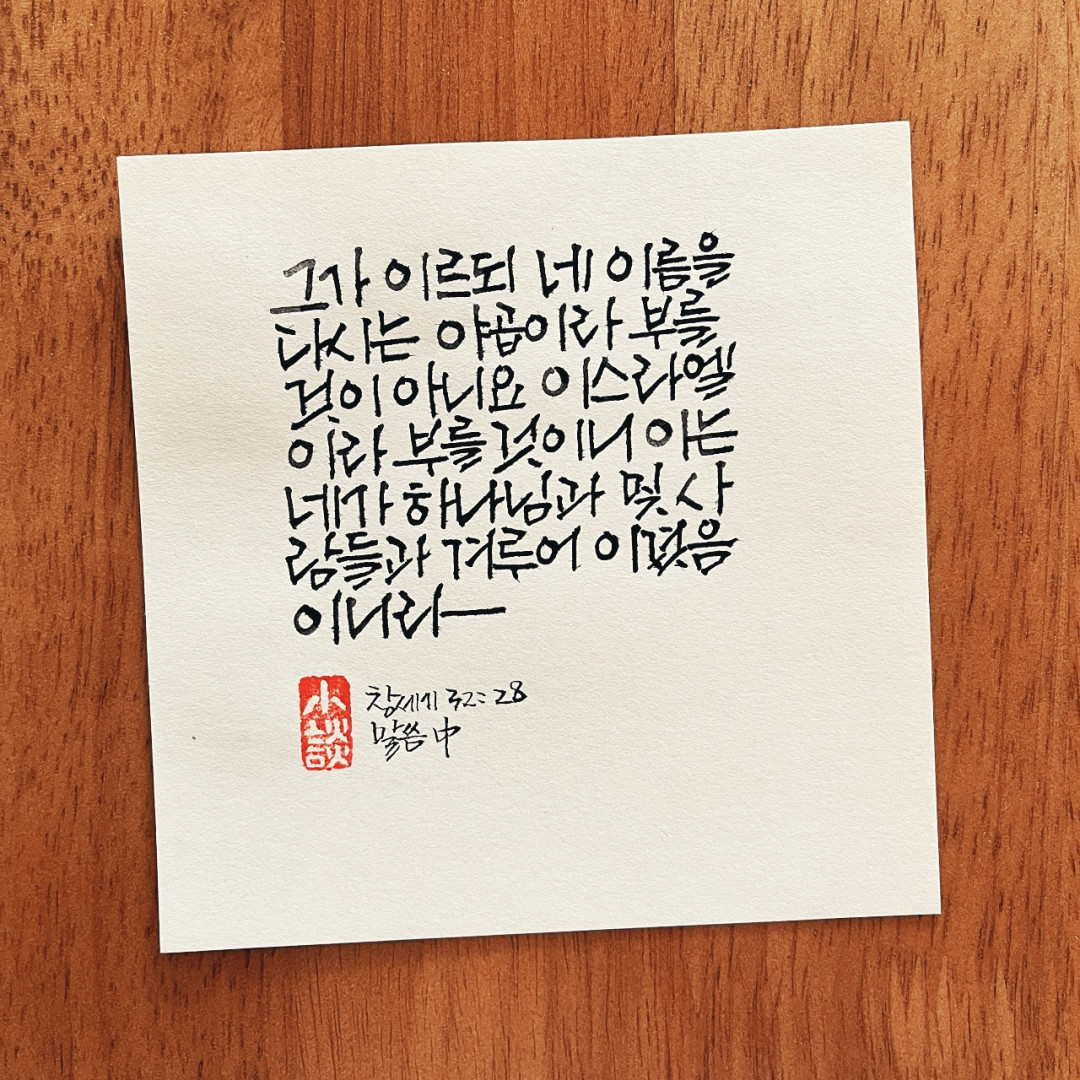 그가 이르되 네 이름을
다시는 야곱이라 부를
것이 아니요 이스라엘
이라 부를 것이니 이는
네가 하나님과 및 사
람들과 겨루어 이겼음
이니라
小談
창세기 32:28
말씀 中